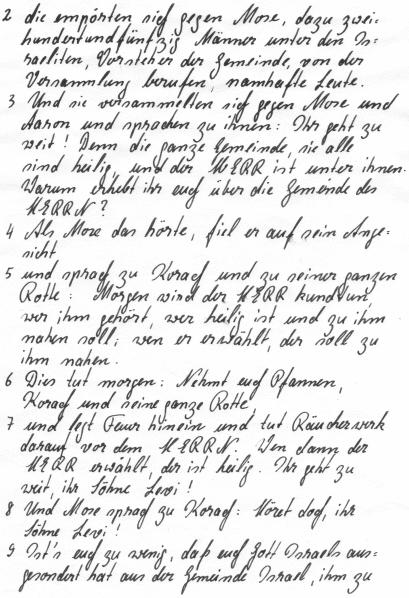 2 die empörten sich gegen Mose, dazu zwei-
hundertundfünfzig Männer unter den Is-
raeliten, Vorsteher der Gemeinde, von der
Versammlung berufen, namhafte Leute.
3 Und sie versammelten sich gegen Mose und
Aaron und sprachen zu ihnen: Ihr geht zu
weit! Denn die ganze Gemeinde, sie alle
sind heilig, und der HERR ist unter ihnen.
Warum erhebt ihr euch über die Gemeinde des
HERRN?
4 Als Mose das hörte, fiel er auf sein Ange-
sicht
5 und sprach zu Korach und zu seiner ganzen
Rotte: Morgen wird der HERR kundtun,
wer ihm gehört, wer heilig ist und zu ihm
nahen soll; wen er erwählt, der soll zu
ihm nahen.
6 Dies tut morgen: Nehmt euch Pfannen,
Korach und seine ganze Rotte,
7 und legt Feuer hinein und tut Räucherwerk
darauf vor dem HERRN. Wen dann der
HERR erwählt, der ist heilig. Ihr geht zu
weit, ihr Söhne Levi!
8 Und Mose sprach zu Korach: Höret doch, ihr
Söhne Levi!
9 Ist's euch zu wenig, daß euch Gott Israels aus-
gesondert hat aus der Gemeinde Israel, ihm zu